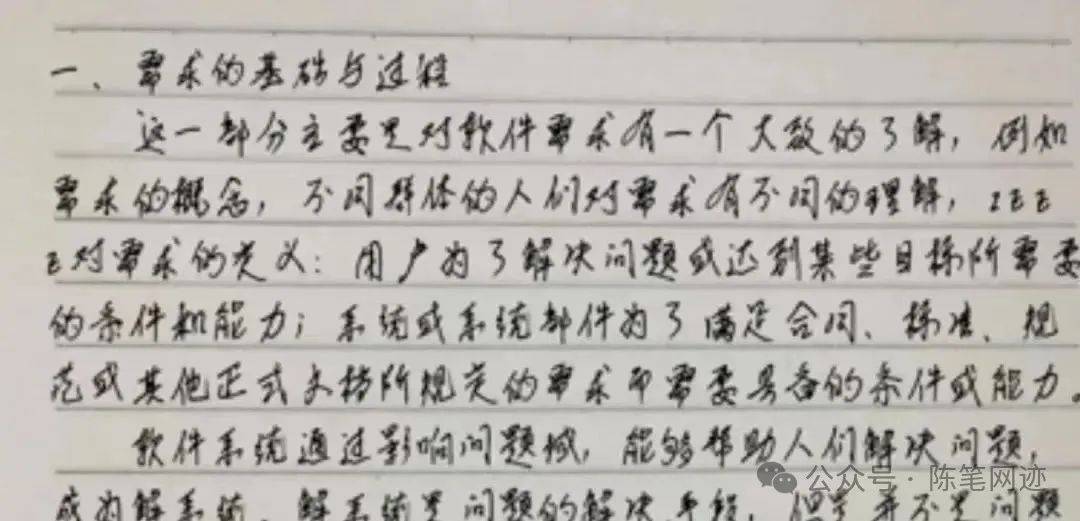 一、需求的基础与过程
这一部分主要是对软件需求有一个大致的了解，例如
需求的概念，不同群体的人们对需求有不同的理解，IEE
E对需求的定义：用户为了解决问题或达到某些目标所需要
的条件和能力；系统或系统部件为了满足合同、标准、规
范或其他正式文档所规定的需求而需要具备的条件或能力。
软件系统通过影响问题域，能够帮助人们解决问题，
成为解系统。解系统是问题的解决手段，但是并不是问题
公众号·陈笔网迹